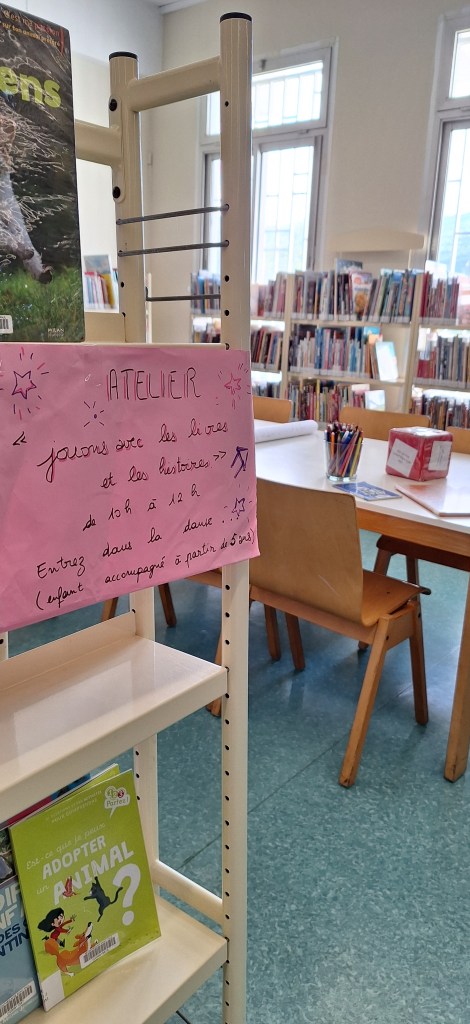 ens
MILAN
ATELIER
« jouons avec les livres
et les histoires »
de 10h à 12h
Entrez dans la danse...
(enfant accompagné à partir de 5 ans)
1 2 3
Partez!
Est-ce que je peux
ADOPTER
un ANIMAL
?